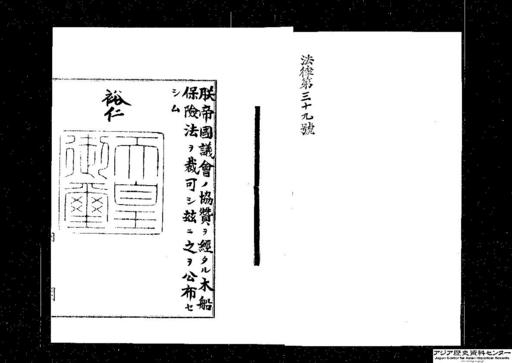 法律第三十九號
朕帝國議會ノ協贊ヲ經タル木船
保險法ヲ裁可シ茲ニ之ヲ公布セ
シム
裕仁
天皇
御璽
アジア歴史資料センター
Japan Center for Asian Historical Records